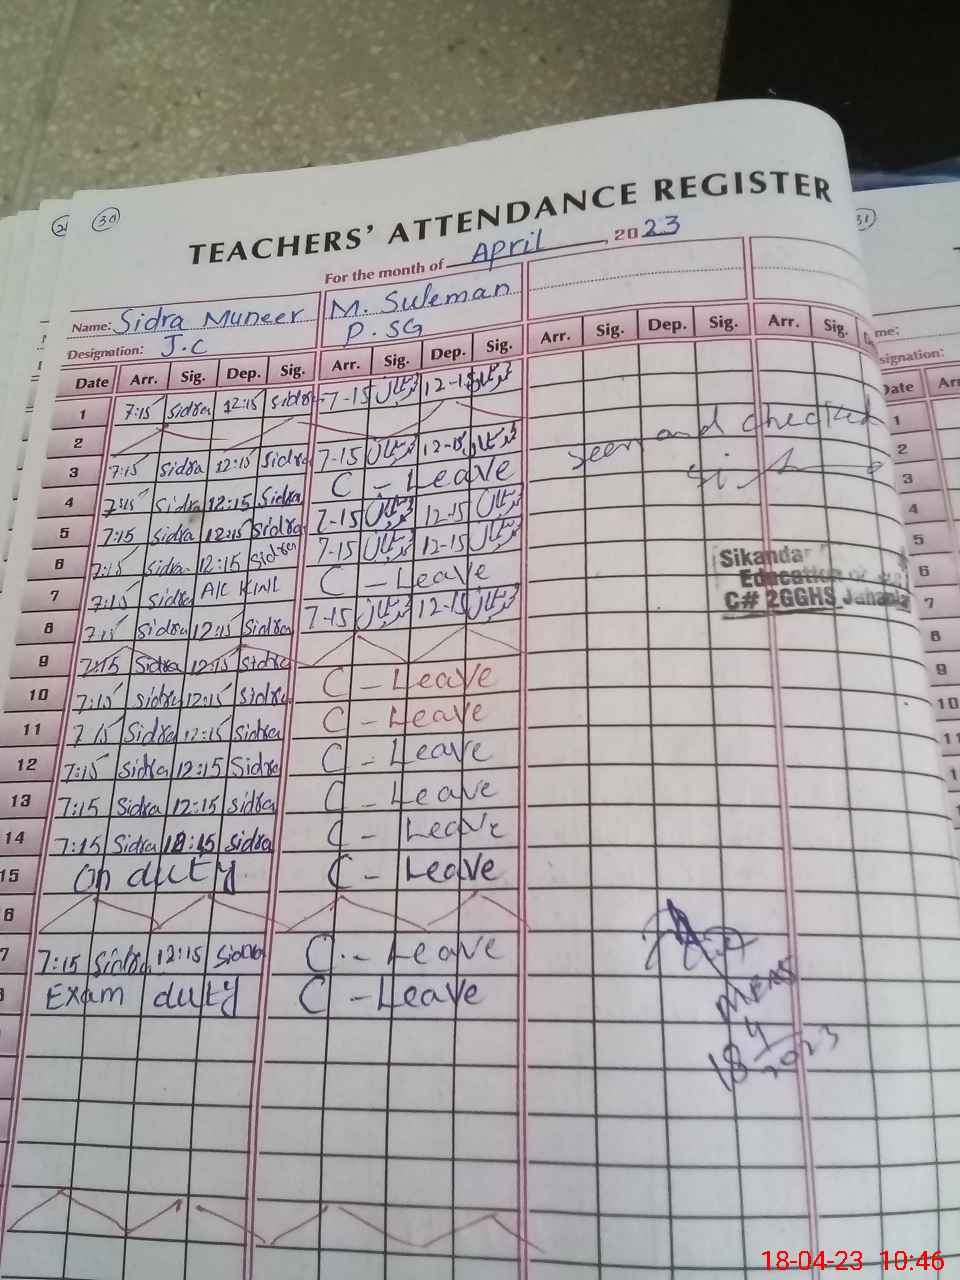 30
TEACHERS' ATTENDANCE REGISTER
For the month of April 2023
Name: Sidra Muneer M. Suleman
Designation: J.C P.SG
Date Arr. Sig. Dep. Sig. Arr. Sig. Dep. Sig. Arr. Sig. Dep. Sig. Arr. Sig.
1 7:15 Sidra 12:15 Sidra 7-15 12-15
2
3 7:15 Sidra 12:15 Sidra 7-15 12-15
4 7:15 Sidra 12:15 Sidra C - Leave
5 7:15 Sidra 12:15 Sidra 7-15 12-15
6 7:15 Sidra 12:15 Sidra 7-15 12-15
7 7:15 Sidra C - Leave
8 7:15 Sidra 12:15 Sidra 7-15 12-15
9 7:15 Sidra 12:15 Sidra
10 7:15 Sidra 12:15 Sidra C - Leave
11 7:15 Sidra 12:15 Sidra C - Leave
12 7:15 Sidra 12:15 Sidra C - Leave
13 7:15 Sidra 12:15 Sidra C - Leave
14 7:15 Sidra 12:15 Sidra C - Leave
15 On duty C - Leave
6
7 7:15 Sidra 12:15 Sidra C - Leave
Exam duty C - Leave
seen and checked
Sikandar
Education
C# 2GGHS
18 4
2023
31
me:
signation:
Date Arr
1
2
3
4
5
6
7
8
9
10
11
18-04-23 10:46